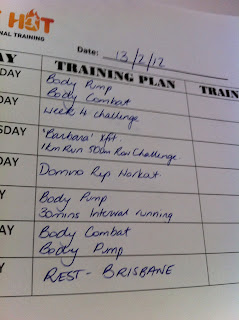 HOT
ONAL TRAINING
Date: 13/2/12
AY TRAINING PLAN TRAIN
DAY Body Pump
Body Combat
AY Week 4 Challenge
SDAY 'Barbara' Xfit
1km Run 500m Row Challenge
DAY Domino Rep Workout
AY Body Pump
30mins Interval running
AY Body Combat
Body Pump
AY REST - BRISBANE